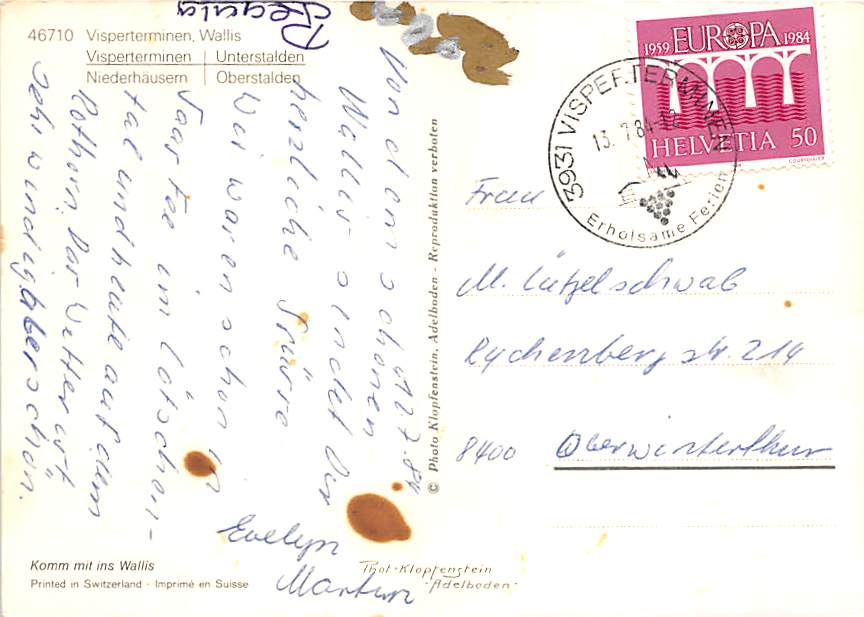 46710 Visperterminen, Wallis
Visperterminen | Unterstalden
Niederhäusern | Oberstalden
Regula
12.7.84
Von dem schönen
Wallis sendet Dir
herzliche Grüsse
Wir waren schon in
Saas Fee im Lötschen-
tal und heute auf dem
Rothorn. Das Wetter ist
sehr windig aber schön.
Evelyn
Martin
Komm mit ins Wallis
Printed in Switzerland · Imprimé en Suisse
© Photo Klopfenstein, Adelboden - Reproduktion verboten
Phot·Klopfenstein
·Adelboden·
1959 EUROPA 1984
HELVETIA 50
COURVOISIER
3931 VISPERTERMINEN
13.7.84-12
Erholsame Ferien
Frau
M. Lützelschwab
Rychenbergstr. 214
8400 Oberwinterthur